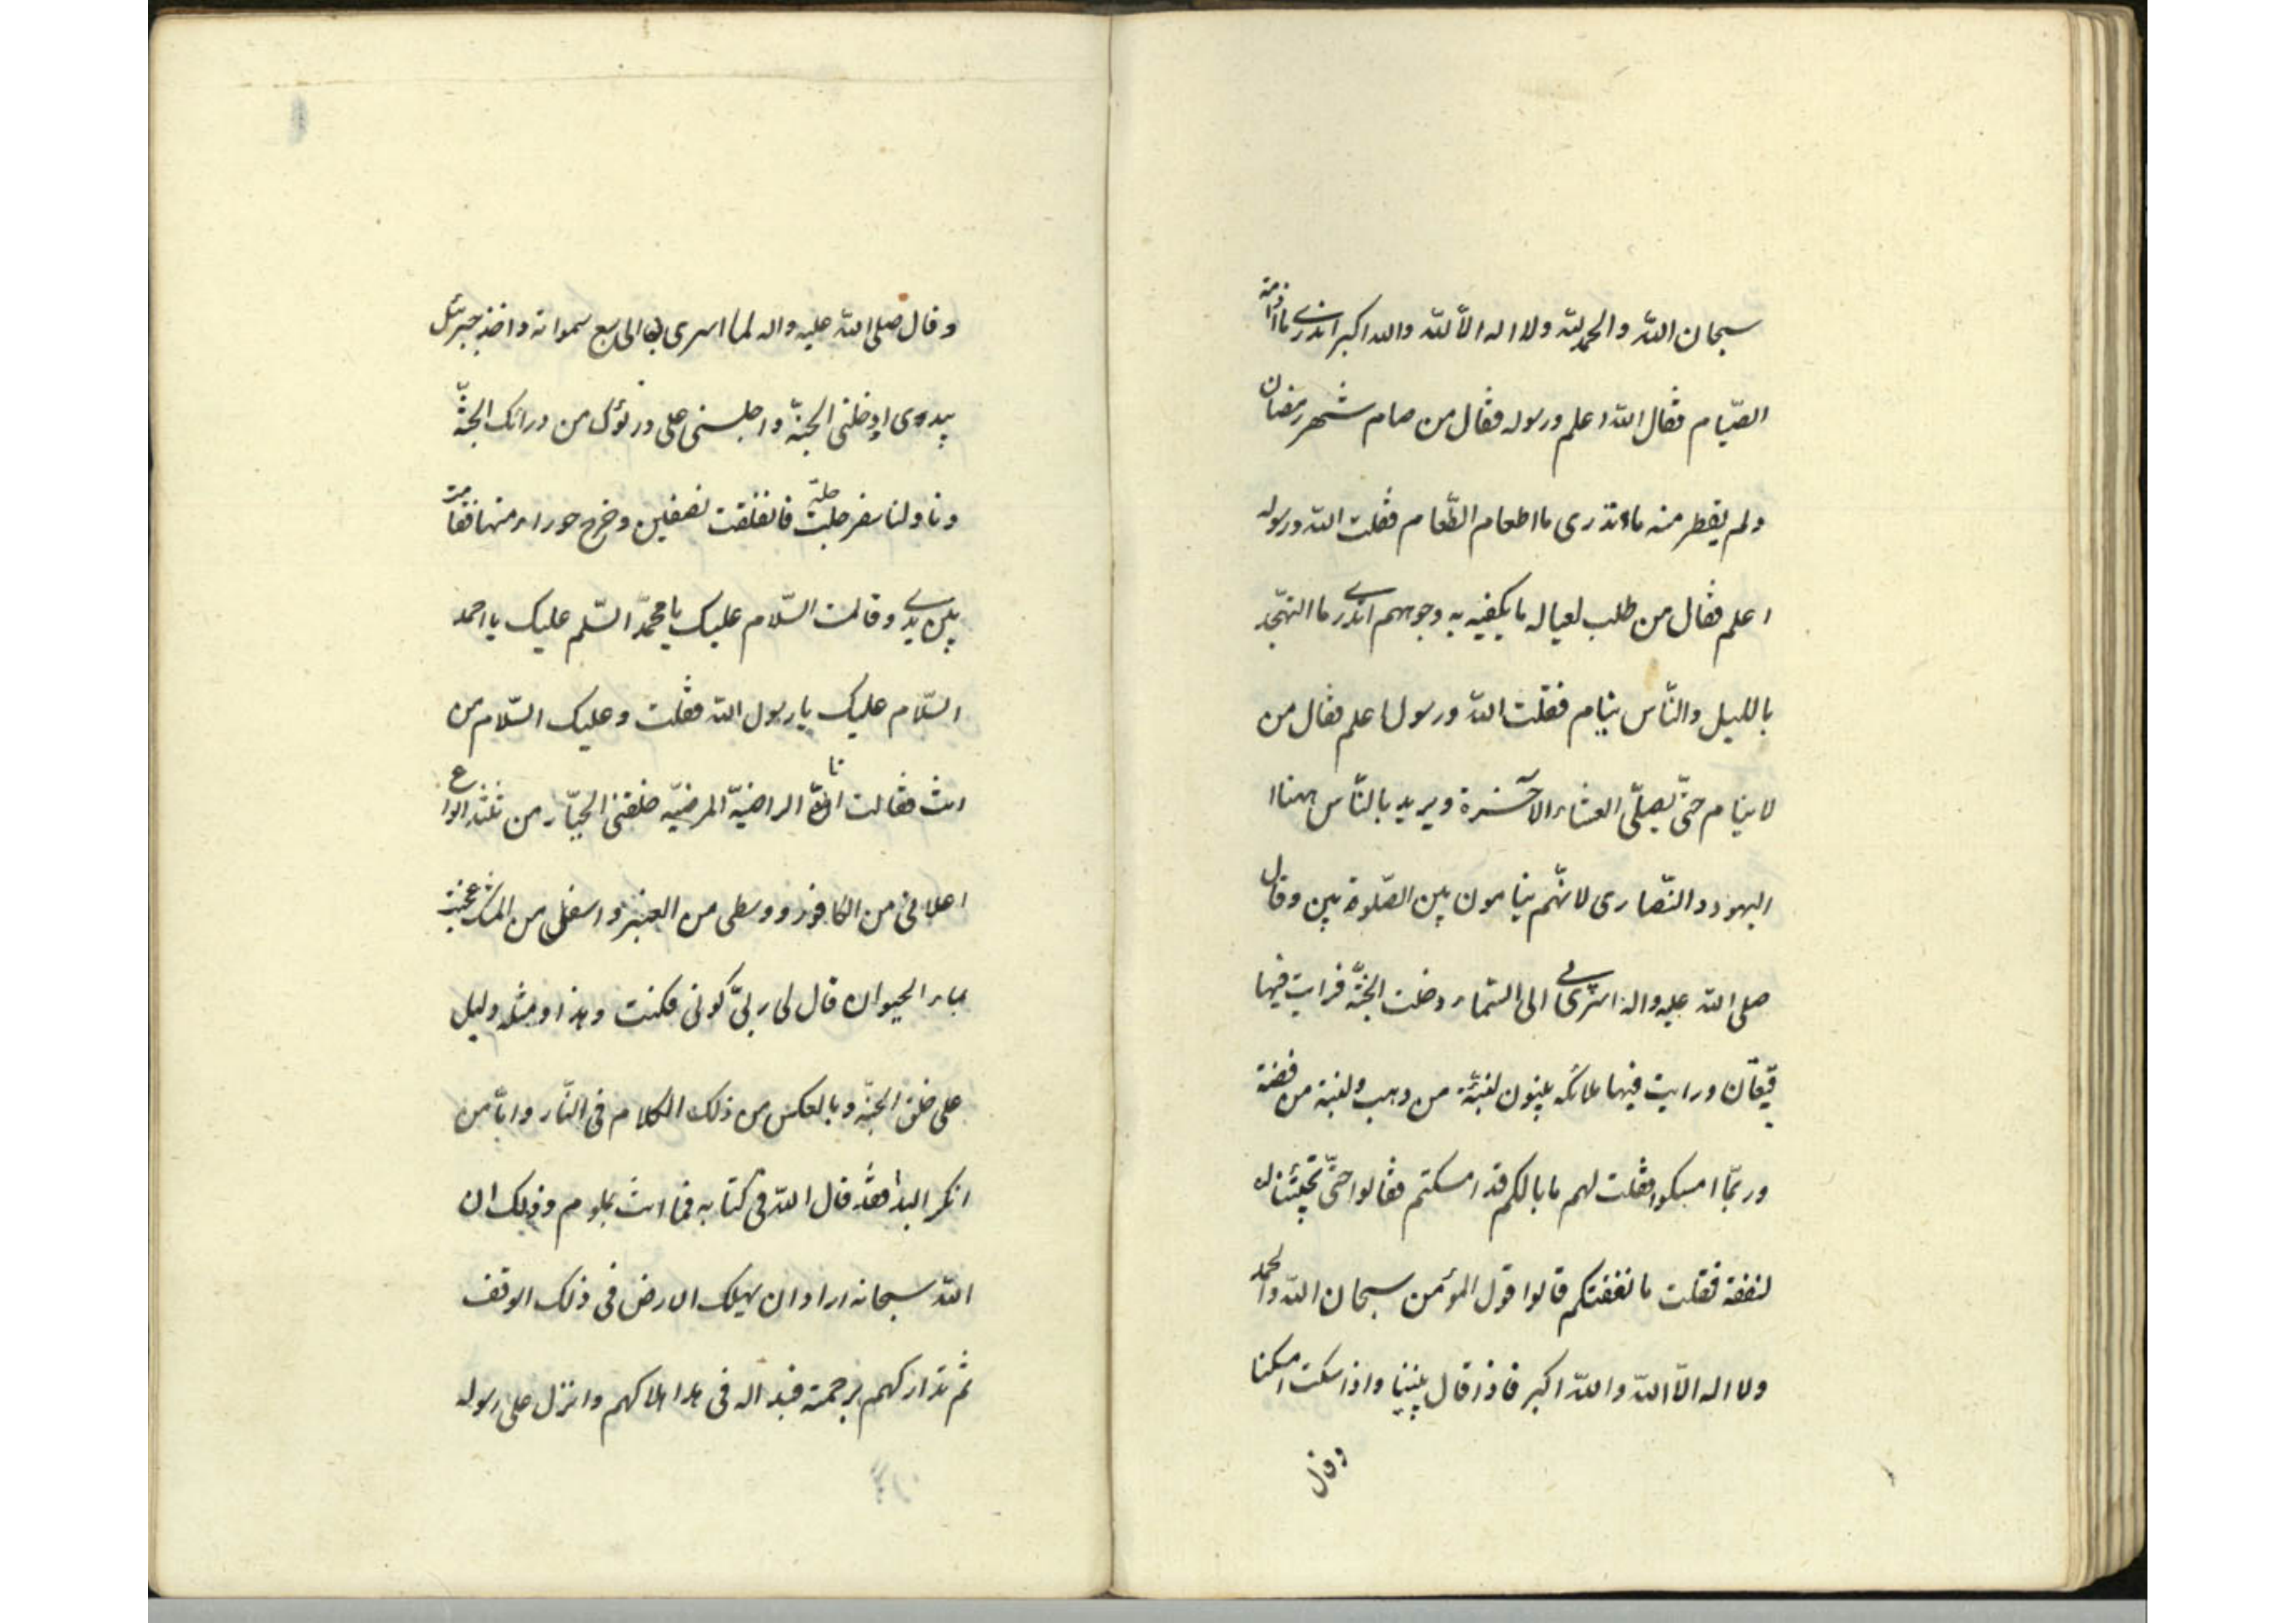 سبحان الله والحمد لله ولا اله الا الله والله اكبر اتدرى ما ادامة
الصّيام فقال الله اعلم ورسوله فقال من صام شهر رمضان
ولم يفطر منه ماءتدرى ما اطعام الطّعام فقلت الله ورسوله
اعلم فقال من طلب لعياله ما يكفيه به وجوههم اتدرى ما التهجّد
بالليل والنّاس ينام فقلت الله ورسوله اعلم فقال من
لا ينام حتّى يصلّى العشاء الآخرة ويريد بالنّاس ههنا
اليهود والنّصارى لانّهم ينامون بين الصّلوة بين وقال
صلى الله عليه واله اسرى بى الى السّماء دخلت الجنّة فرايت فيها
قيعان ورايت فيها ملائكه يبنون لبنة من ذهب ولبنة من فضة
وربّما امسكوا فقلت لهم ما بالكم قد امسكتم فقالوا حتّى تجيئنا
لنفقة فقلت ما نفقتكم قالوا قول المؤمن سبحان الله والحمد
ولا اله الّا الله والله اكبر فاذا قال بنينا واذا سكت امسكنا
وقال
وقال صلى الله عليه واله لما اسرى بى الى سبع سمواته واخذ جبرئيل
بيدى ادخلنى الجنّة واجلسنى على درنوك من درانك الجنّة
وناولنا سفرجلة فانفلقت نصفين وخرج حوراء منها فقامت
بين يدى وقالت السّلام عليك يا محمّد السّلم عليك يا احمد
السّلام عليك يا رسول الله فقلت وعليك السّلام من
انت فقالت انا الراضيّة المرضيّة خلقنى الجبّار من ثلثه انواع
اعلائى من الكافور ووسطى من العنبر واسفلى من المسك عجنت
بماء الحيوان قال لى ربّى كونى فكنت وهذا ومثله وليل
على خلق الجنّة وبالعكس من ذلك الكلام فى النّار وامّا من
انكر البدا فقد قال الله فى كتابه فما انت بملوم وذلك ان
الله سبحانه اراد ان يهلك الارض فى ذلك الوقف
ثم تداركهم برحمته فبدا له فى هلاكهم وانزل على رسوله